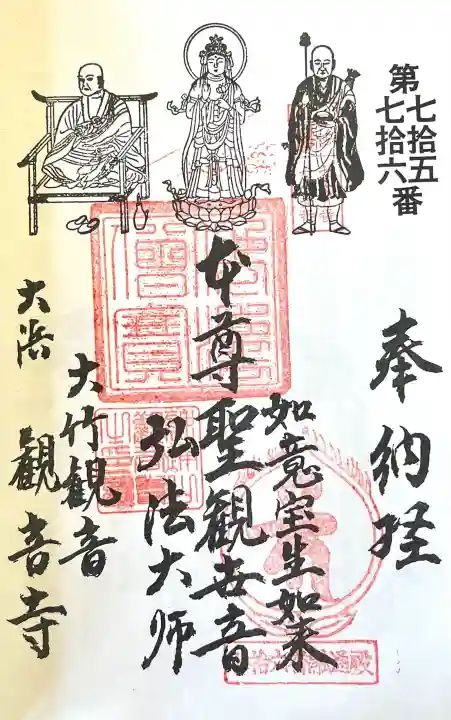 第七拾五
七拾六番
奉納経
如意宝生如来
本尊聖観世音
弘法大師
大竹観音
大浜
観音寺